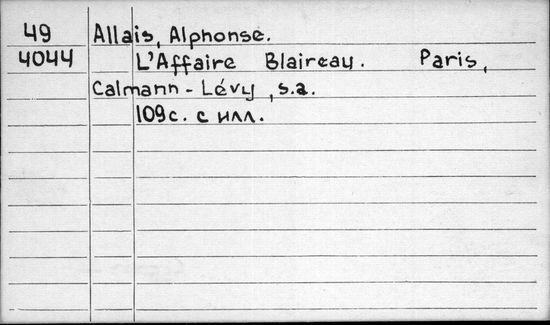 49 Allais, Alphonse.
4044 L'Affaire Blaireau. Paris,
Calmann-Lévy, s.a.
109с. с илл.